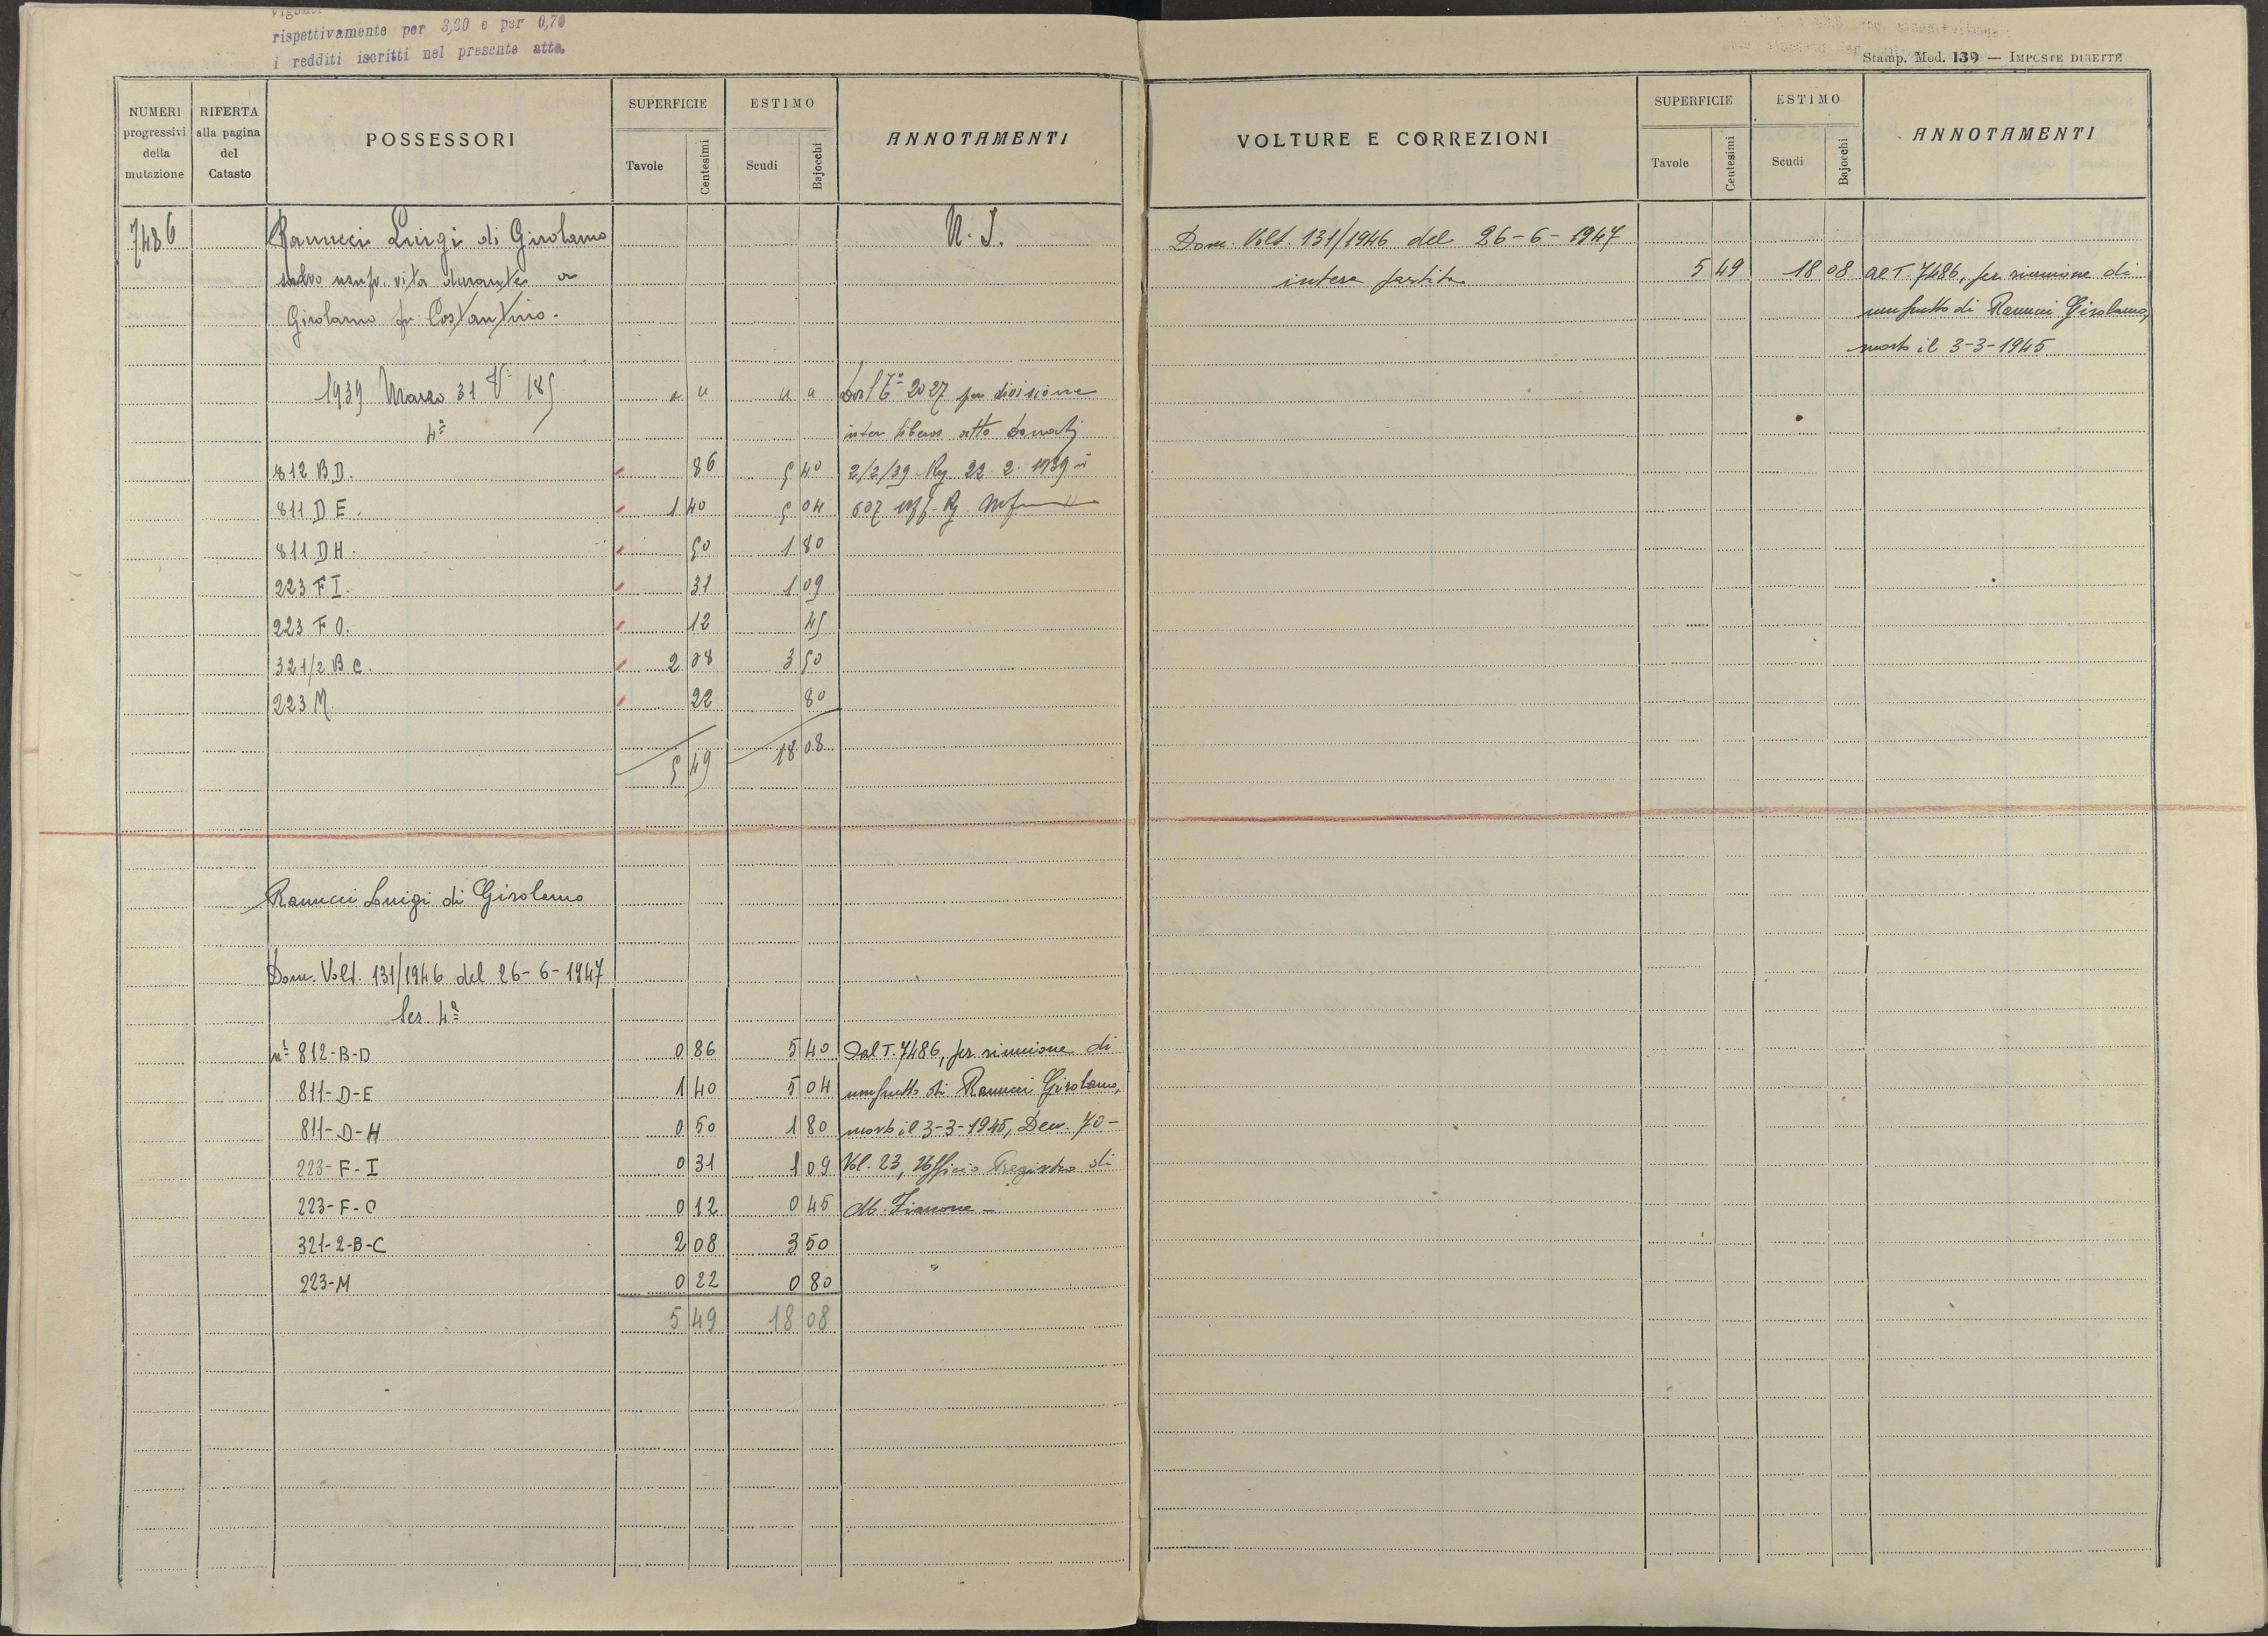 rispettivamente per 3,60 e per 0,70
i redditi iscritti nel presente atto.
NUMERI progressivi della mutazione
RIFERTA alla pagina del Catasto
POSSESSORI
SUPERFICIE
Tavole Centesimi
ESTIMO
Scudi Bajocchi
ANNOTAMENTI
7486 Ranucci Luigi di Girolamo N. I.
salvo usufr. vita durante a
Girolamo fu Costantino.
1939 Marzo 31 V= 185 " " " " Dal T= 2027 per divisione
4ª inter liberos atto Donati
812 B D. 86 5 40 2/2/39 Reg 22. 2. 1939
811 D E. 1 40 5 04 607
811 D H. 50 1 80
223 F I. 31 1 09
223 F O. 12 45
321/2 B C. 2 08 3 50
223 M 22 80
5 49 18 08
Ranucci Luigi di Girolamo
Dom. Volt. 131/1946 del 26-6-1947
Sez. 4ª
nⁱ 812-B-D 0 86 5 40 Dal T. 7486, per riunione di
811-D-E 1 40 5 04 usufrutto di Ranucci Girolamo,
811-D-H 0 50 1 80 morto il 3-3-1945, Den. 70-
223-F-I 0 31 1 09 Vol. 23, Ufficio Registro di
223-F-O 0 12 0 45 M. Fiascone -
321-2-B-C 2 08 3 50
223-M 0 22 0 80 "
5 49 18 08
Stamp. Mod. 139 — IMPOSTE DIRETTE
VOLTURE E CORREZIONI
SUPERFICIE
Tavole Centesimi
ESTIMO
Scudi Bajocchi
ANNOTAMENTI
Dom. Volt. 131/1946 del 26-6-1947
intera partita 5 49 18 08 Al T. 7486, per riunione di
usufrutto di Ranucci Girolamo,
morto il 3-3-1945